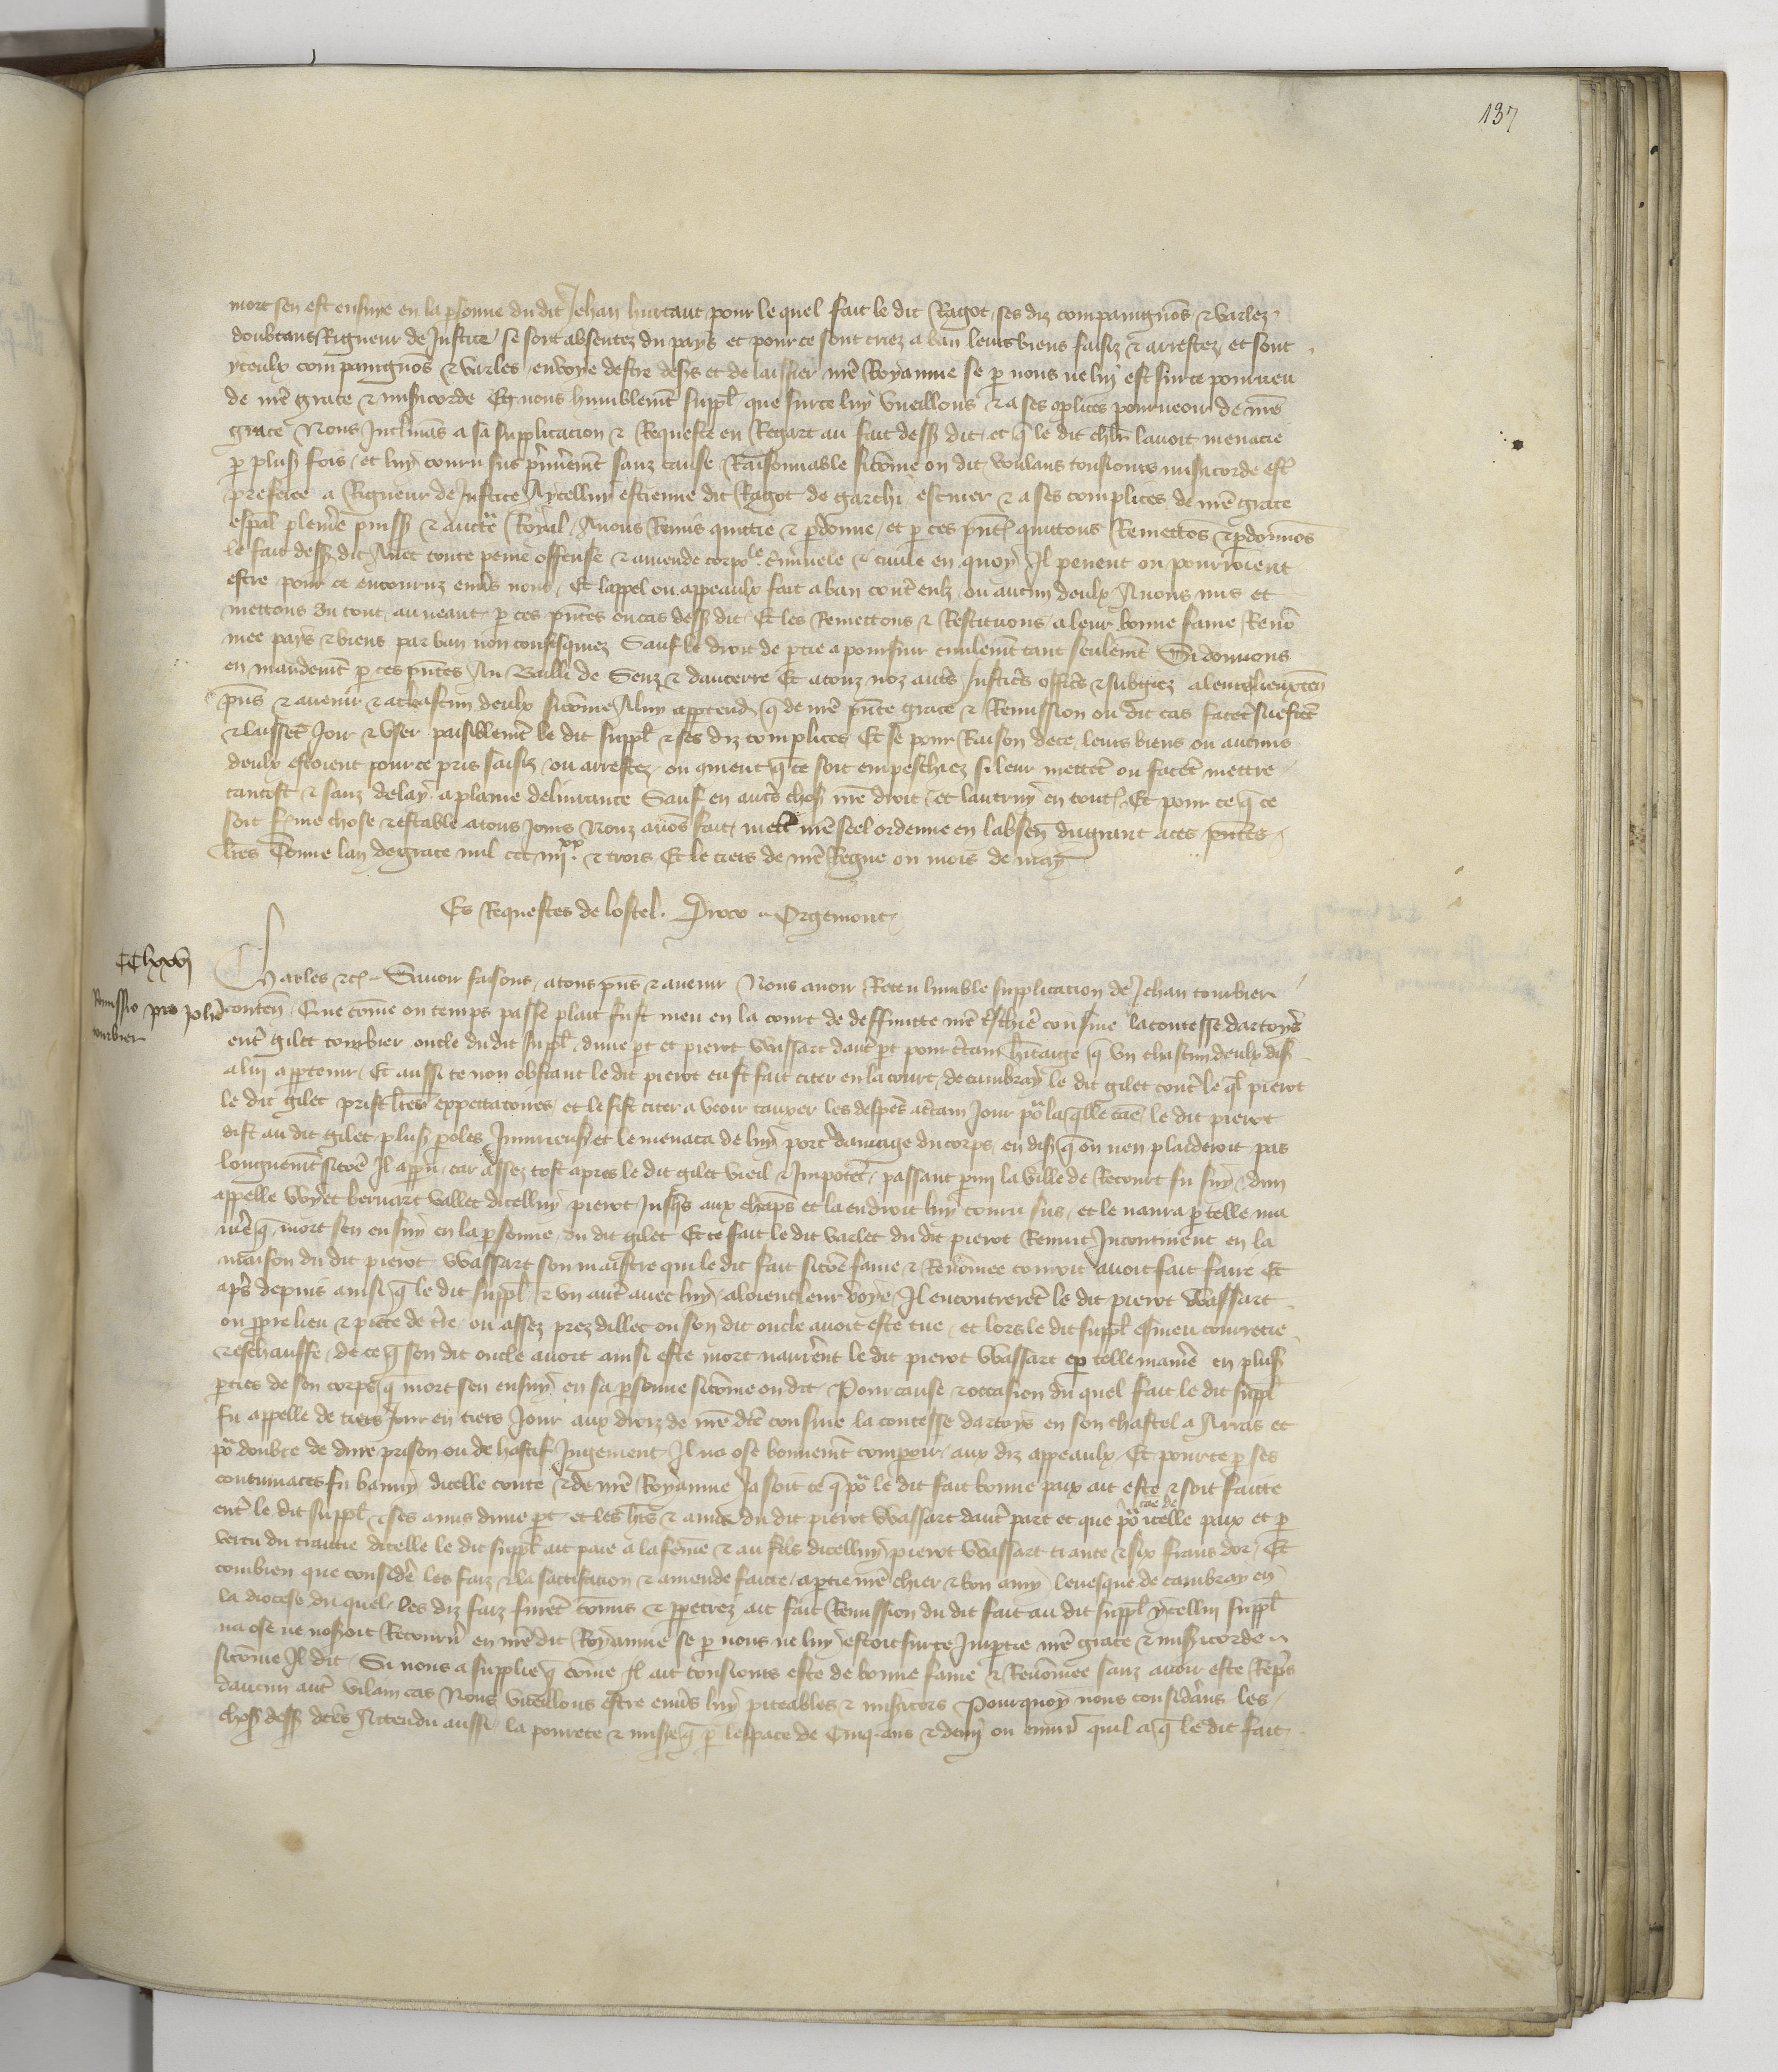 137
mort sen est ensuye en la psonne du dit Jehan hurtaut pour le quel fait le dit Ragot ses diz compaingnos & varlez
doubtans Rigueur de Justice se sont absentez du pays et pour ce sont criez a ban leurs biens saisiz & arrestez et sont
yceulx compaingnos & varles en voye destre desers et de laissier nre Royaume se p nous ne luy est sur ce pourueu
de nre grace & misicorde Et nous humblemt suppl que sur ce luy vueillons & a ses oplices pourueoir de nre
grace Nous Inclinas a sa supplicacion & Requeste en Regart au fait dess dit et q le dit chlr lauoit menacie
p plus fois et luy couru sus pmieremt sanz cause Raisonnable sicome on dit voulans tousiours misicorde est
preferee a Rigueur de Justice Aycelluy estienne dit Ragot de garchi escuier & a ses complices de nre grace
espal pleine puiss & aucte Royal Auons Remis quittie & pdonne et p ces pnt quittons Remettos & pdonnos
le fait dess dit Auec toute peine offense & amende corpole criminele & ciuile en quoy Il peuent ou pourroient
estre pour ce encouruz enuers nous Et lappel ou appeaulx fait a ban contre eulz ou aucun deulx Auons mis et
mettons du tout au neant p ces pntes ou cas dess dit Et les Remettons & Restituons a leur bonne fame Reno
mee pays & biens par ban non confisquiez Sauf le droit de ptie a poursuir ciuilemt tant seulemt Si donnons
en mandemt p ces pntes Au Bailli de Senz & daucerre Et a touz noz autres Justiciers officiers & subgiez a leurs lieuxten
pns & auenir & a chascun deulx sicome A luy apptendra q de nre pnte grace & Remission ou dit cas facet sueffret
& laissent Joir & user paisiblemt le dit suppl & ses diz complices Et se pour Raison de ce leurs biens ou aucuns
deulx estoient pour ce pris saisiz ou arrestez ou qment q ce soit empeschiez si leur mettet ou facet mettre
tantost & sanz delay a plaine deliurance Sauf en autres chos nre droit et lautruy en tout Et pour ce q ce
soit ferme chose & estable a tous jours Nouz auos fait mett nre seel ordenne en labsen du grant a ces pntes
lres Donne lan de grace mil ccc iiijxx & trois Et le tiers de nre Regne ou mois de may
Es Requestes de lostel. Orgemont
CClxxvj
Remissio pro Johe
tombier
Charles etc Sauoir faisons a tous pns & auenir Nous auoir Receu humble supplicacion de Jehan tombier
conten Que come ou temps passe plait fust meu en la court de deffuncte nre treschiere cousine la contesse dartoys
entre gilet tombier oncle du dit suppl dune pt et pierot Wassart dautre pt pour certain heritaige q un chascun deulx dis
a luy apptenir Et aussi ce non obstant le dit pierot eust fait citer en la court de cambray le dit gilet contre le ql pierot
le dit gilet prist lres exppectatoires et le fist citer a veoir tauxer les despens a certain Jour pour la qlle cae le dit pierot
dist au dit gilet plus poles Iniurieus et le menaca de luy port damage du corps en dis q on nen plaideroit pas
longuemt sicoe Il appru car assez tost apres le dit gilet vieil & Impotet passant pmy la ville de Recourt fu suy dun
appelle Wyet bernart vallet dicelluy pierot Jusqs aux chaps et la endroit luy couru sus et le naura p telle ma
niere q mort sen ensuy en la psonne du dit gilet Et ce fait le dit varlet du dit pierot Reuint Incontinent en la
maison du dit pierot Wassart son maistre qui le dit fait sicoe fame & Renomee couroit auoit fait faire Et
aps depuis ainsi q le dit suppl & un autre auec luy aloient leur voye Il encontreret le dit pierot Wassart
ou ppre lieu & piece de tre ou assez prez dillec ou son dit oncle auoit este tue et lors le dit suppl esmeu courrecie
& eschauffe de ce q son dit oncle auoit ainsi este mort naurerent le dit pierot Wassart p telle maniere en plus
pties de son corps q mort sen ensuy en sa psonne sicome on dit Pour cause & occasion du quel fait le dit suppl
fu appelle de tiers Jour en tiers Jour aux droiz de nre dte cousine la contesse dartoys en son chastel a Arras et
pour doubte de dure prison ou de hastif Jugement Il na ose bonnemt compoir aux diz appeaulx Et pour ce p ses
contumaces fu banny dicelle conte & de nre Royaume Ja soit ce q pour le dit fait bonne paix ait este & soit faicte
entre le dit suppl & ses amis dune pt et les hers & amis du dit pierot Wassart dautre part et que pour cae de icelle paix et p
vertu du traictie dicelle le dit suppl ait paie a la feme & au filz dicelluy pierot Wassart trante & six frans dor Et
combien que considere les faiz & la satisfacion & amende faicte a ptie nre chier & bon amy leuesque de cambray en
la diocese du quel les diz faiz furet comis & ppetrez ait fait Remission du dit fait au dit suppl ycelluy suppl
na ose ne noseroit Retourner en nre dit Royaume se p nous ne luy estoit sur ce Imptie nre grace & misicorde
sicome Il dit Si nous a supplie q come Il ait tousiours este de bonne fame & Renomee sanz auoir este Reps
daucun autre vilain cas Nous vueillons estre enuers luy piteables & misicors Pourquoy nous considerans les
chos dess dtes Attendu aussi la pourete & misere q p lespace de Cinq ans & demy ou enuiron quil a q le dit fait